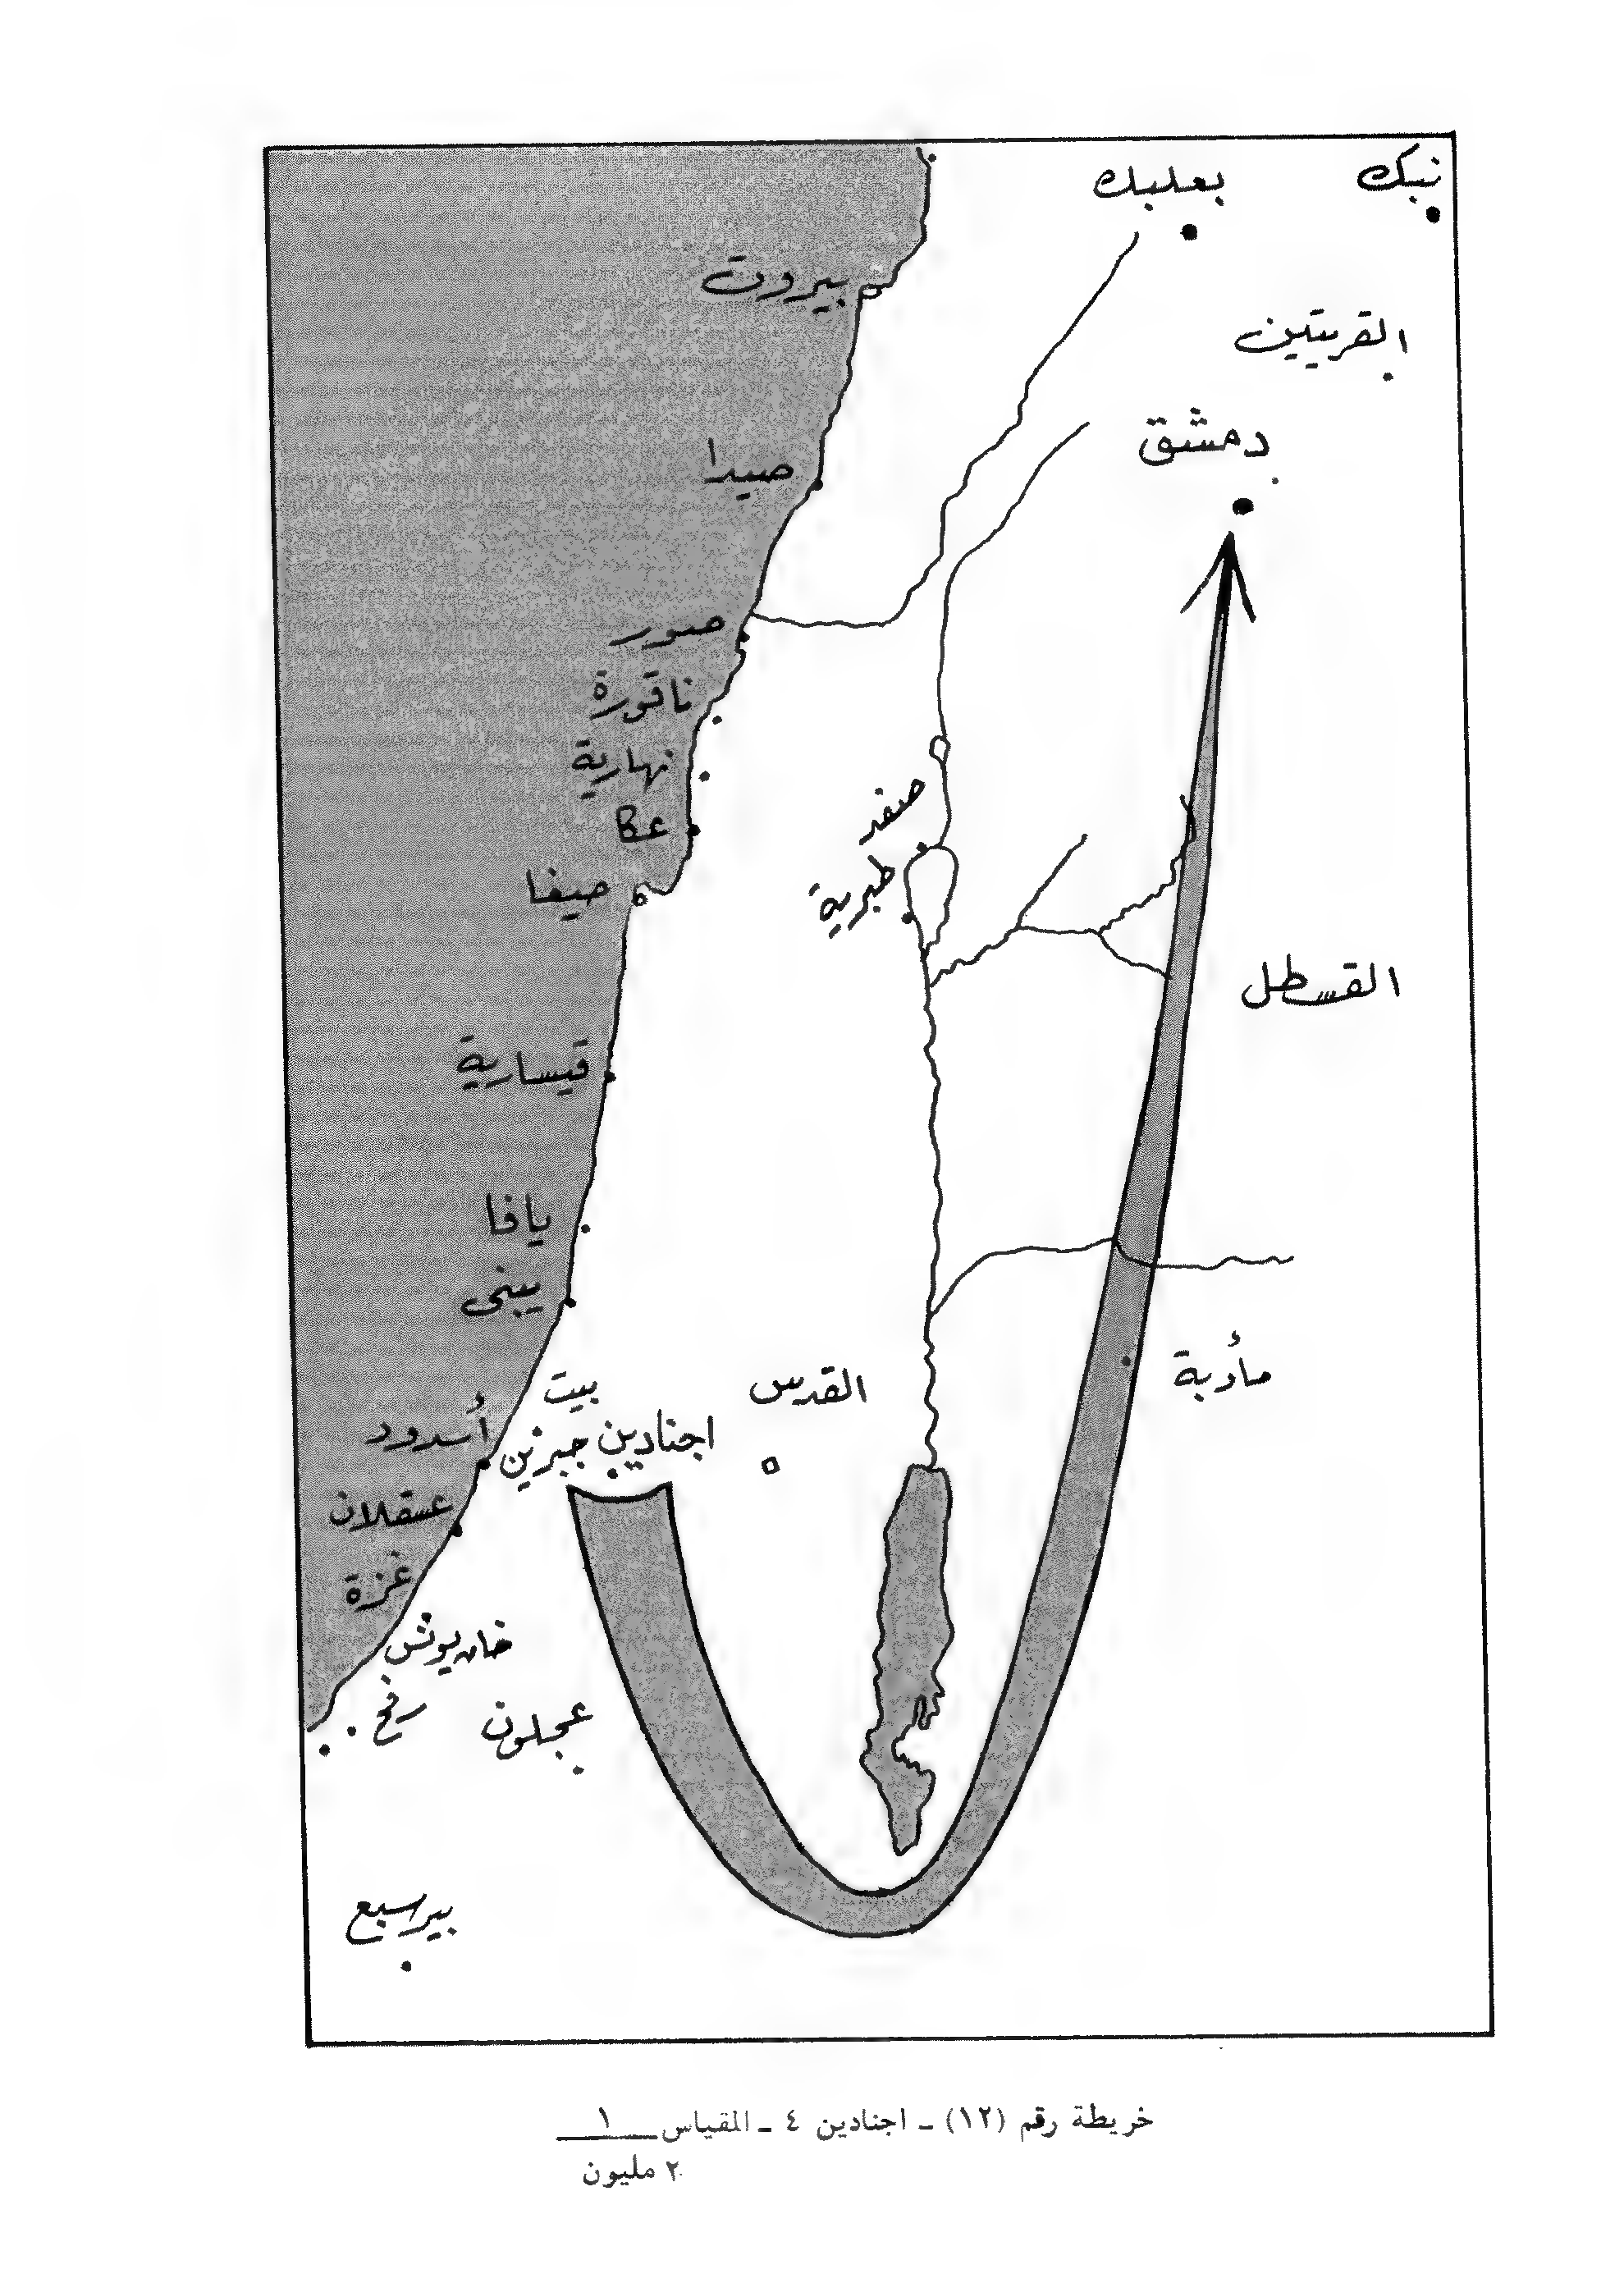 نبك
بعلبك
بيروت
القريتين
دمشق
صيدا
صور
ناقورة
نهارية
صفد
عكا
طبرية
حيفا
القسطل
قيسارية
يافا
يبنى
مأدبة
القدس
بيت
جبرين
اجنادين
أسدود
عسقلان
غزة
خان يونس
رفح
عجلون
بير سبع
خريطة رقم (١٢) ـ اجنادين ٤ ـ المقياس ١
٢ مليون